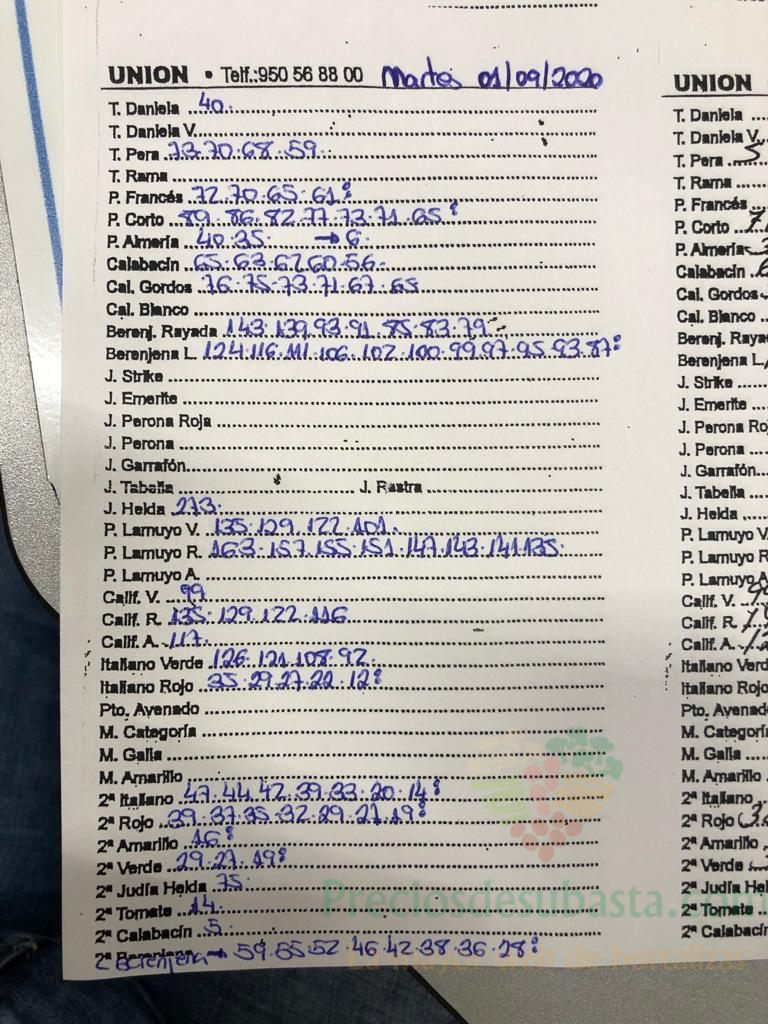 UNION • Telf.:950 56 88 00 Martes 01/09/2020
T. Daniela 40.
T. Daniela V.
T. Pera 73.70.68.59.
T. Rama
P. Francés 72.70.65.61:
P. Corto 89.86.82.77.73.71.65:
P. Almería 40.35. → 6.
Calabacín 65.63.62.60.56.
Cal. Gordos 76.75.73.71.67.65
Cal. Blanco
Berenj. Rayada 143.139.93.91.85.83.79.-
Berenjena L. 124.116.111.106.102.100.99.97.95.93.87:
J. Strike
J. Emerite
J. Perona Roja
J. Perona
J. Garrafón
J. Tabella J. Rastra
J. Helda 273.
P. Lamuyo V. 135.129.122.101.
P. Lamuyo R. 163.157.155.151.147.143.141.135.
P. Lamuyo A.
Calif. V. 99
Calif. R. 135.129.122.116
Calif. A. 117.
Italiano Verde 126.121.108.92.
Italiano Rojo 35.29.27.22.12:
Pto. Avenado
M. Categoría
M. Galia
M. Amarillo
2ª Italiano 47.44.42.39.33.20.14:
2ª Rojo 39.37.35.32.29.21.19:
2ª Amariño 16:
2ª Verde 29.27.19:
2ª Judía Helda 75.
2ª Tomate 14.
2ª Calabacín 5.
2 Berenjena → 59.55.52.46.42.38.36.28:
Preciosdesubasta.com
UNION
T. Daniela
T. Daniela V.
T. Pera
T. Rama
P. Francés
P. Corto
P. Almería
Calabacín
Cal. Gordos
Cal. Blanco
Berenj. Raya
Berenjena L.
J. Strike
J. Emerite
J. Perona Ro
J. Perona
J. Garrafón
J. Tabella
J. Helda
P. Lamuyo V
P. Lamuyo R
P. Lamuyo A
Calif. V.
Calif. R.
Calif. A.
Italiano Verd
Italiano Rojo
Pto. Avenad
M. Categorí
M. Galia
M. Amarillo
2ª Italiano
2ª Rojo
2ª Amariño
2ª Verde
2ª Judía Hel
2ª Tomate
2ª Calabací